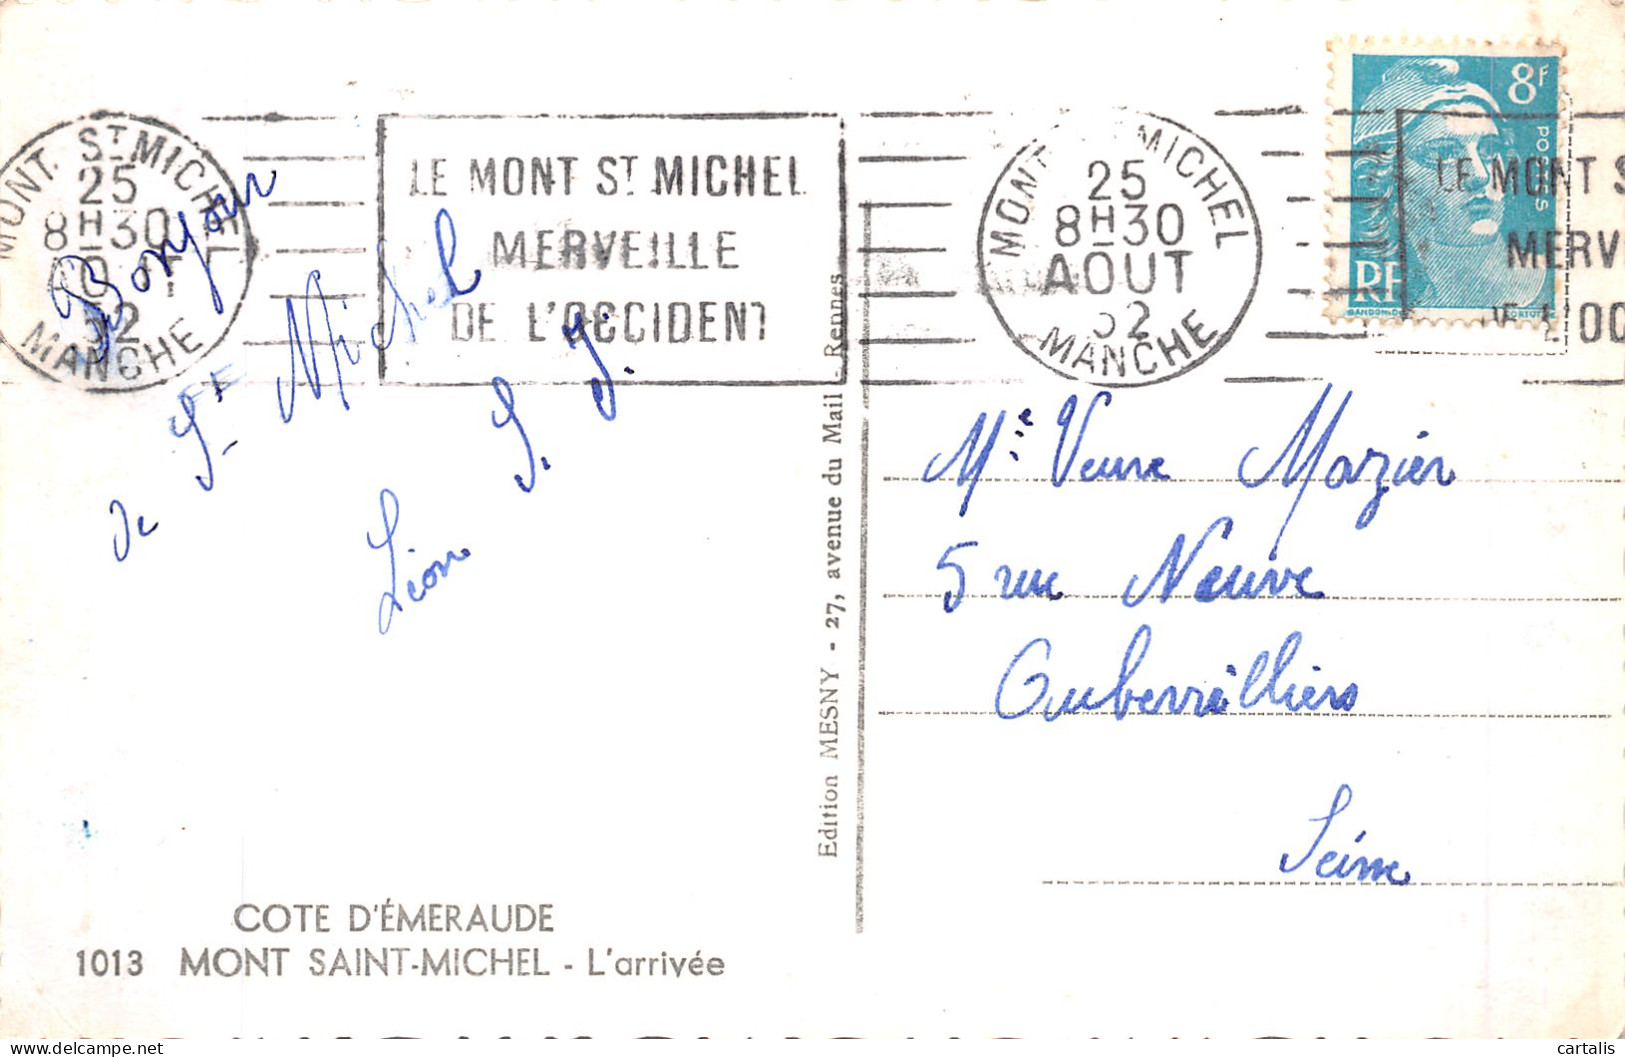 MONT ST MICHEL
25
8H30
AOUT
52
MANCHE
LE MONT ST MICHEL
MERVEILLE
DE L'OCCIDENT
MONT MICHEL
25
8H30
AOUT
52
MANCHE
8F
POSTES
RF
GANDON
LE MONT S
MERV
DE L'OC
Bonjour
de St Michel
Léon
Edition MESNY - 27, avenue du Mail - Rennes
Mme Veuve Mazier
5 rue Neuve
Aubervilliers
Seine
COTE D'ÉMERAUDE
1013 MONT SAINT-MICHEL - L'arrivée
cartalis